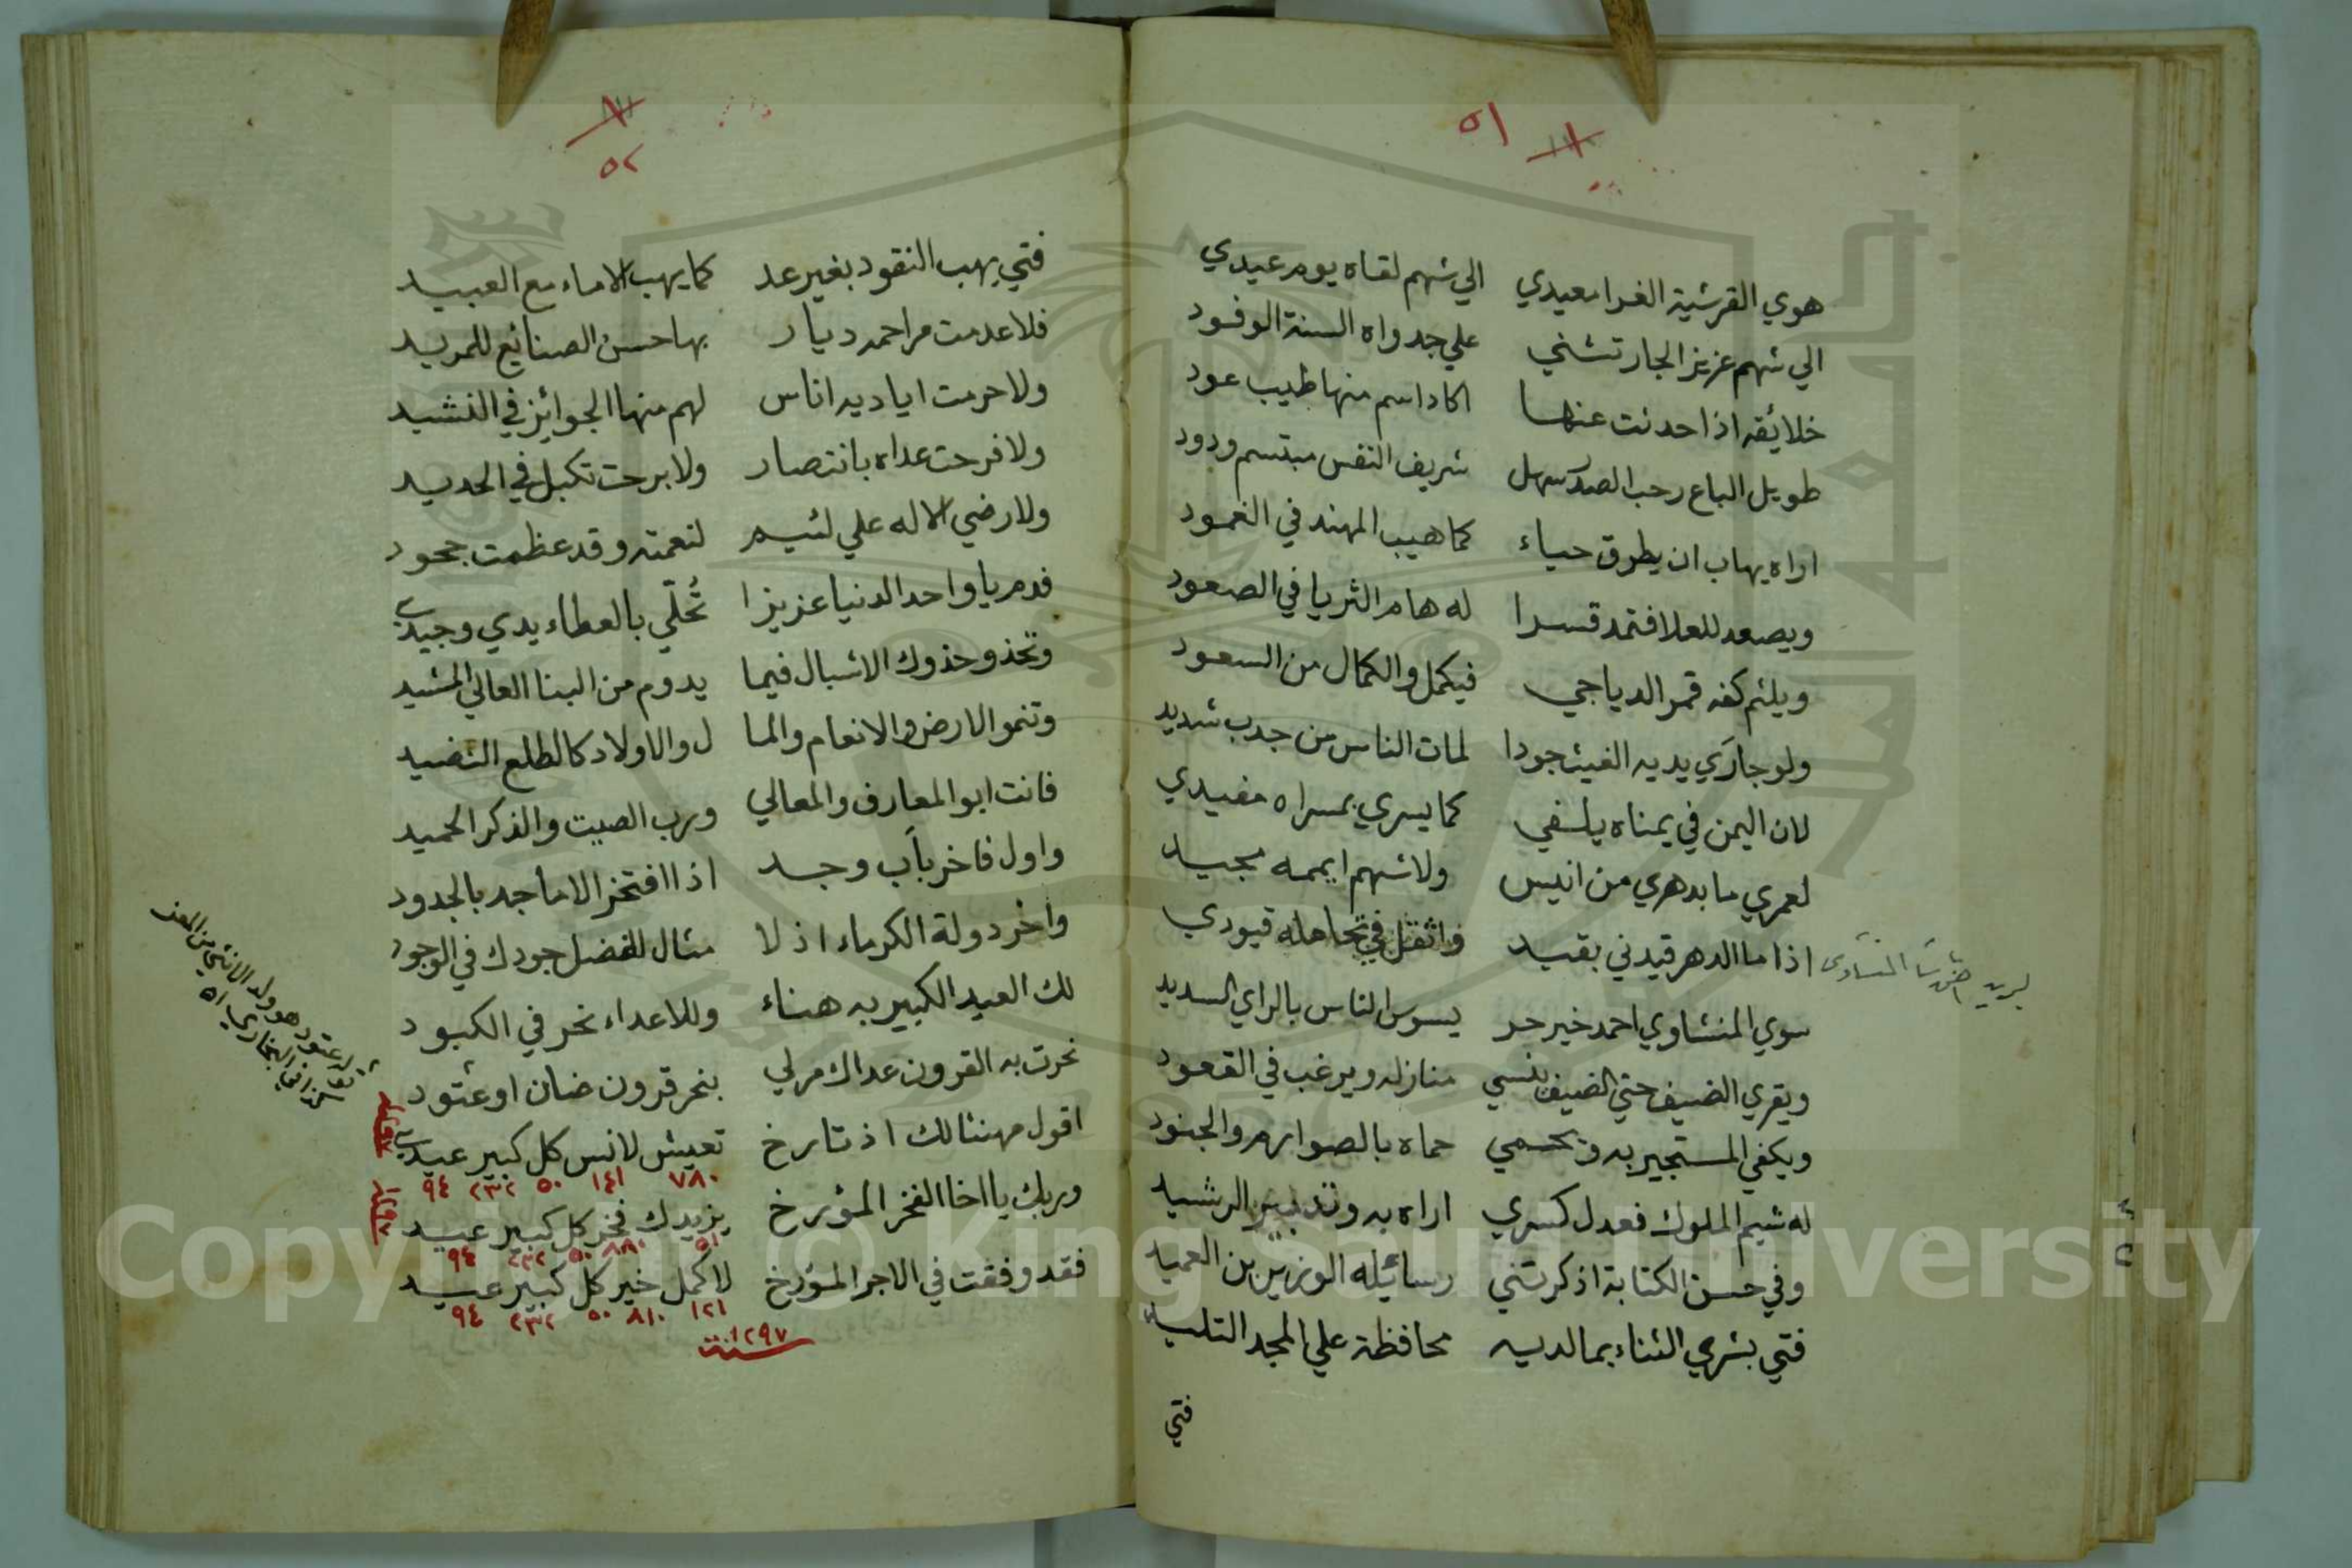 ٥١
هوي القرشية الغرا معيدي الي شهم لقاه يوم عيدي
الي شهم عزيز الجار تشني علي جدواه السنة الوفود
خلائقه اذا حدثت عنها اكاد اسم منها طيب عود
طويل الباع رحب الصدر سهل شريف النفس مبتسم ودود
اراه يهاب ان يطرق حياء كما هيب المهند في الغمود
ويصعد للعلا فتمد قسرا له هام الثريا في الصعود
ويلثم كفه قمر الدياجي فيكمل والكمال من السعود
ولو جاري يديه الغيث جودا لمات الناس من جدب شديد
لان اليمن في يمناه يلفي كما يسري بمسراه مفيدي
لعمري ما بدهري من انيس ولا شهم ايممه مجيد
اذا ما الدهر قيدني بقيد واثقل في تحامله قيودي
سوي المنشاوي احمد خير حر يسوس الناس بالراي السديد
ويقري الضيف حتي الضيف ينسي منازله ويرغب في القعود
ويكفي المستجير به ويحمي حماه بالصوارم والجنود
له شيم الملوك فعدل كسري اراه به وتدبير الرشيد
وفي حسن الكتابة اذكرتني رسائله الوزير بن العميد
فتي يشري الثناء بما لديه محافظة علي المجد التليد
فتي
٥٢
فتي يهب النقود بغير عد كما يهب الاماء مع العبيد
فلا عدمت مراحمه ديار بها حسن الصنائع للمريد
ولا حرمت اياديه اناس لهم منها الجوائز في النشيد
ولا فرحت عداه بانتصار ولا برحت تكبل في الحديد
ولا رضي الاله علي لئيم لنعمته وقد عظمت جحود
فدم يا واحد الدنيا عزيزا تُحلّي بالعطاء يدي وجيدي
وتحذو حذوك الاشبال فيما يدوم من البنا العالي المشيد
وتنمو الارض والانعام والما ل والاولاد كالطلع النضيد
فانت ابو المعارف والمعالي ورب الصيت والذكر الحميد
واول فاخر بأب وجد اذا افتخر الاماجد بالجدود
واخر دولة الكرماء اذ لا مثال لفضل جودك في الوجود
لك العيد الكبير به هناء وللاعداء نحر في الكبود
نحرت به القرون عداك مرلي بنحر قرون ضان او عتود
اقول مهنئا لك اذ تارخ تعيش لانس كل كبير عيدي
٧٨٠ ١٤١ ٥٠ ٢٣٢ ٩٤
وربك يا اخا الفخر المؤرخ يزيدك فخر كل كبير عيد
٥١ ٨٨٠ ٥٠ ٢٣٢ ٩٤
فقد وفقت في الاجر المؤرخ لاكمل خير كل كبير عيد
١٢١ ٨١٠ ٥٠ ٢٣٢ ٩٤
سنة ١٢٩٧
عتود هو ولد الانثي من المعز
كذا في البخاري اه
Copyright © King Saud University